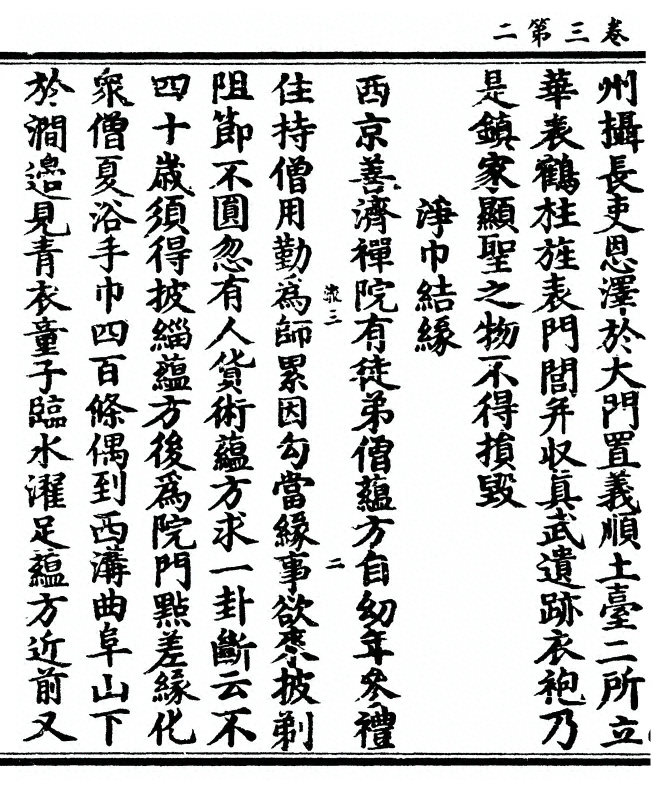 卷三第二
州攝長吏恩澤於大門置義順土臺二所立
華表鶴柱旌表門閭并収真武遺跡衣袍乃
是鎮家顯聖之物不得損毀
淨巾結緣
西京善濟禪院有徒弟僧蘊方自幼年叅禮
流三
二
住持僧用勤爲師累因勾當緣事欲求披剃
阻節不圓忽有人貨術蘊方求一卦斷云不
四十歲須得披緇蘊方後爲院門點差緣化
衆僧夏浴手巾四百條偶到西溝曲阜山下
於澗邉見青衣童子臨水濯足蘊方近前又